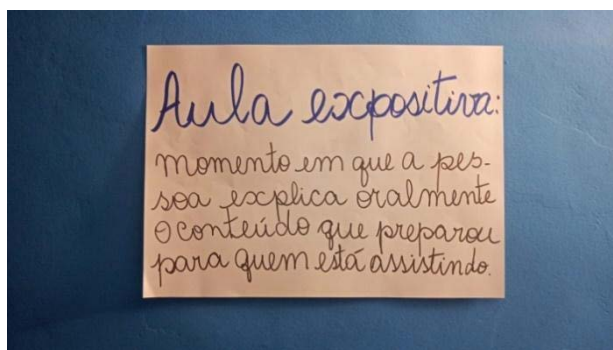 Aula expositiva:
momento em que a pes-
soa explica oralmente
o conteúdo que preparou
para quem está assistindo.